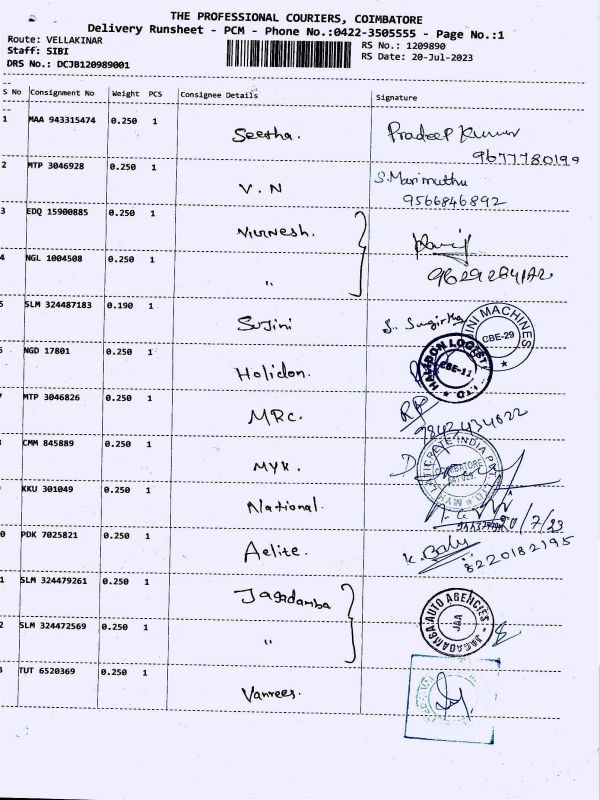 THE PROFESSIONAL COURIERS, COIMBATORE
Delivery Runsheet - PCM - Phone No.:0422-3505555 - Page No.:1
Route: VELLAKINAR
RS No.: 1209890
Staff: SIBI
RS Date: 20-Jul-2023
DRS No.: DCJB120989001
S No Consignment No Weight PCS Consignee Details Signature
1 MAA 943315474 0.250 1 Seetha. Pradeep Kumar
9677780199
2 MTP 3046928 0.250 1 V. N S. Marimuthu
9566846892
3 EDQ 15900885 0.250 1
4 NGL 1004508 0.250 1 "
5 SLM 324487183 0.190 1 Sujini
MACHINES
CBE-29
NGD 17801 0.250 1 Holidon.
CBE-11
MTP 3046826 0.250 1 MRC.
9842434622
CMM 845889 0.250 1 MYK.
COIMBATORE
KKU 301049 0.250 1 National.
20/7/23
0 PDK 7025821 0.250 1 Aelite. K. Babu
8220182195
1 SLM 324479261 0.250 1 Jagadamba
JAGADAMBA AUTO AGENCIES
JAA
2 SLM 324472569 0.250 1 "
3 TUT 6520369 0.250 1